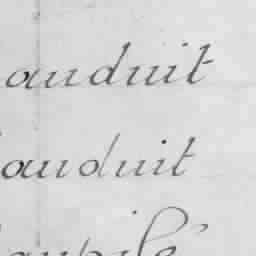 auduit
auduit